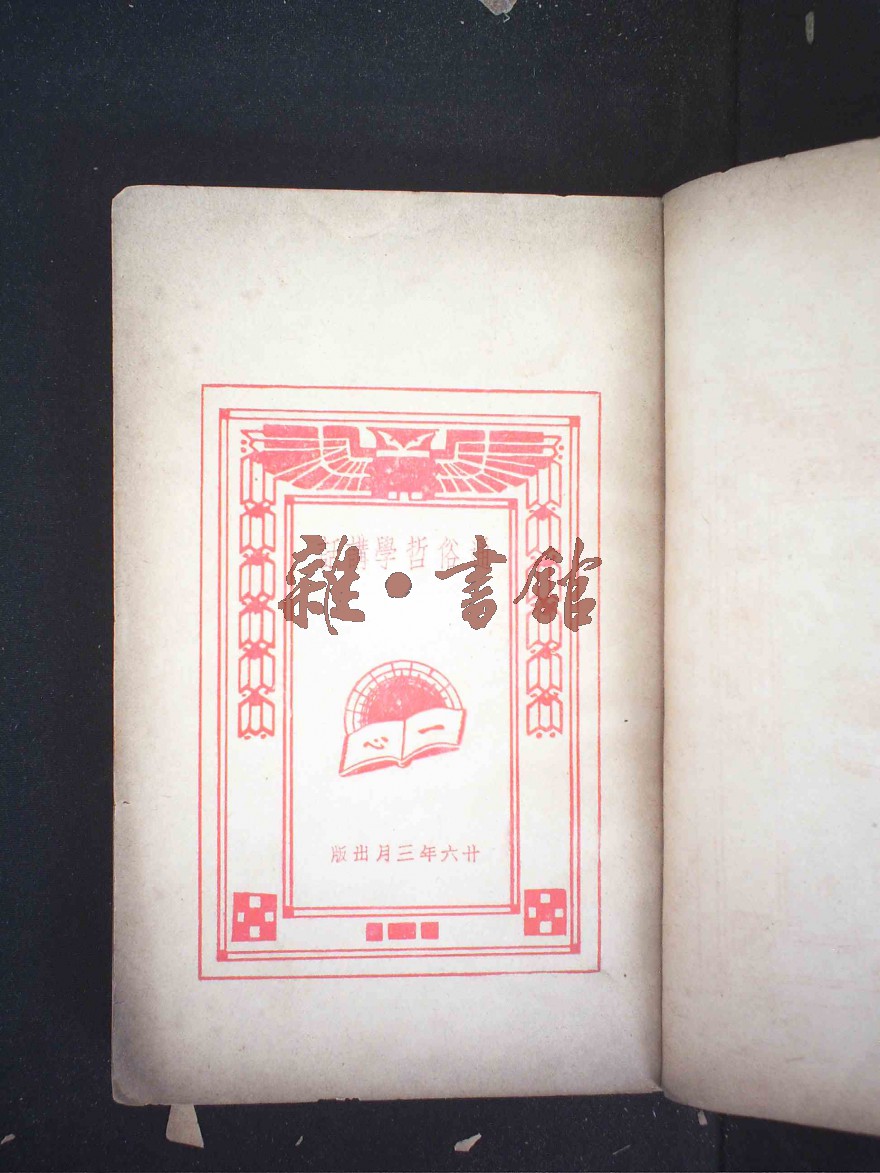 通俗哲學講話
雜•書館
一心
廿六年三月出版